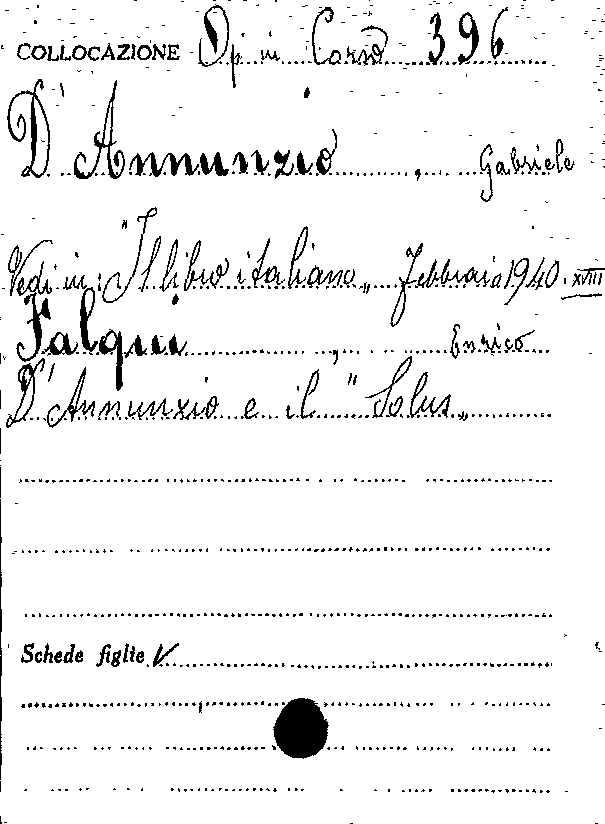 COLLOCAZIONE Op in Corso 396
D'Annunzio, Gabriele
Vedi in: "Il libro italiano„ Febbraio 1940. XVIII
Falqui, Enrico
D'Annunzio e il "Solus„
Schede figlie V